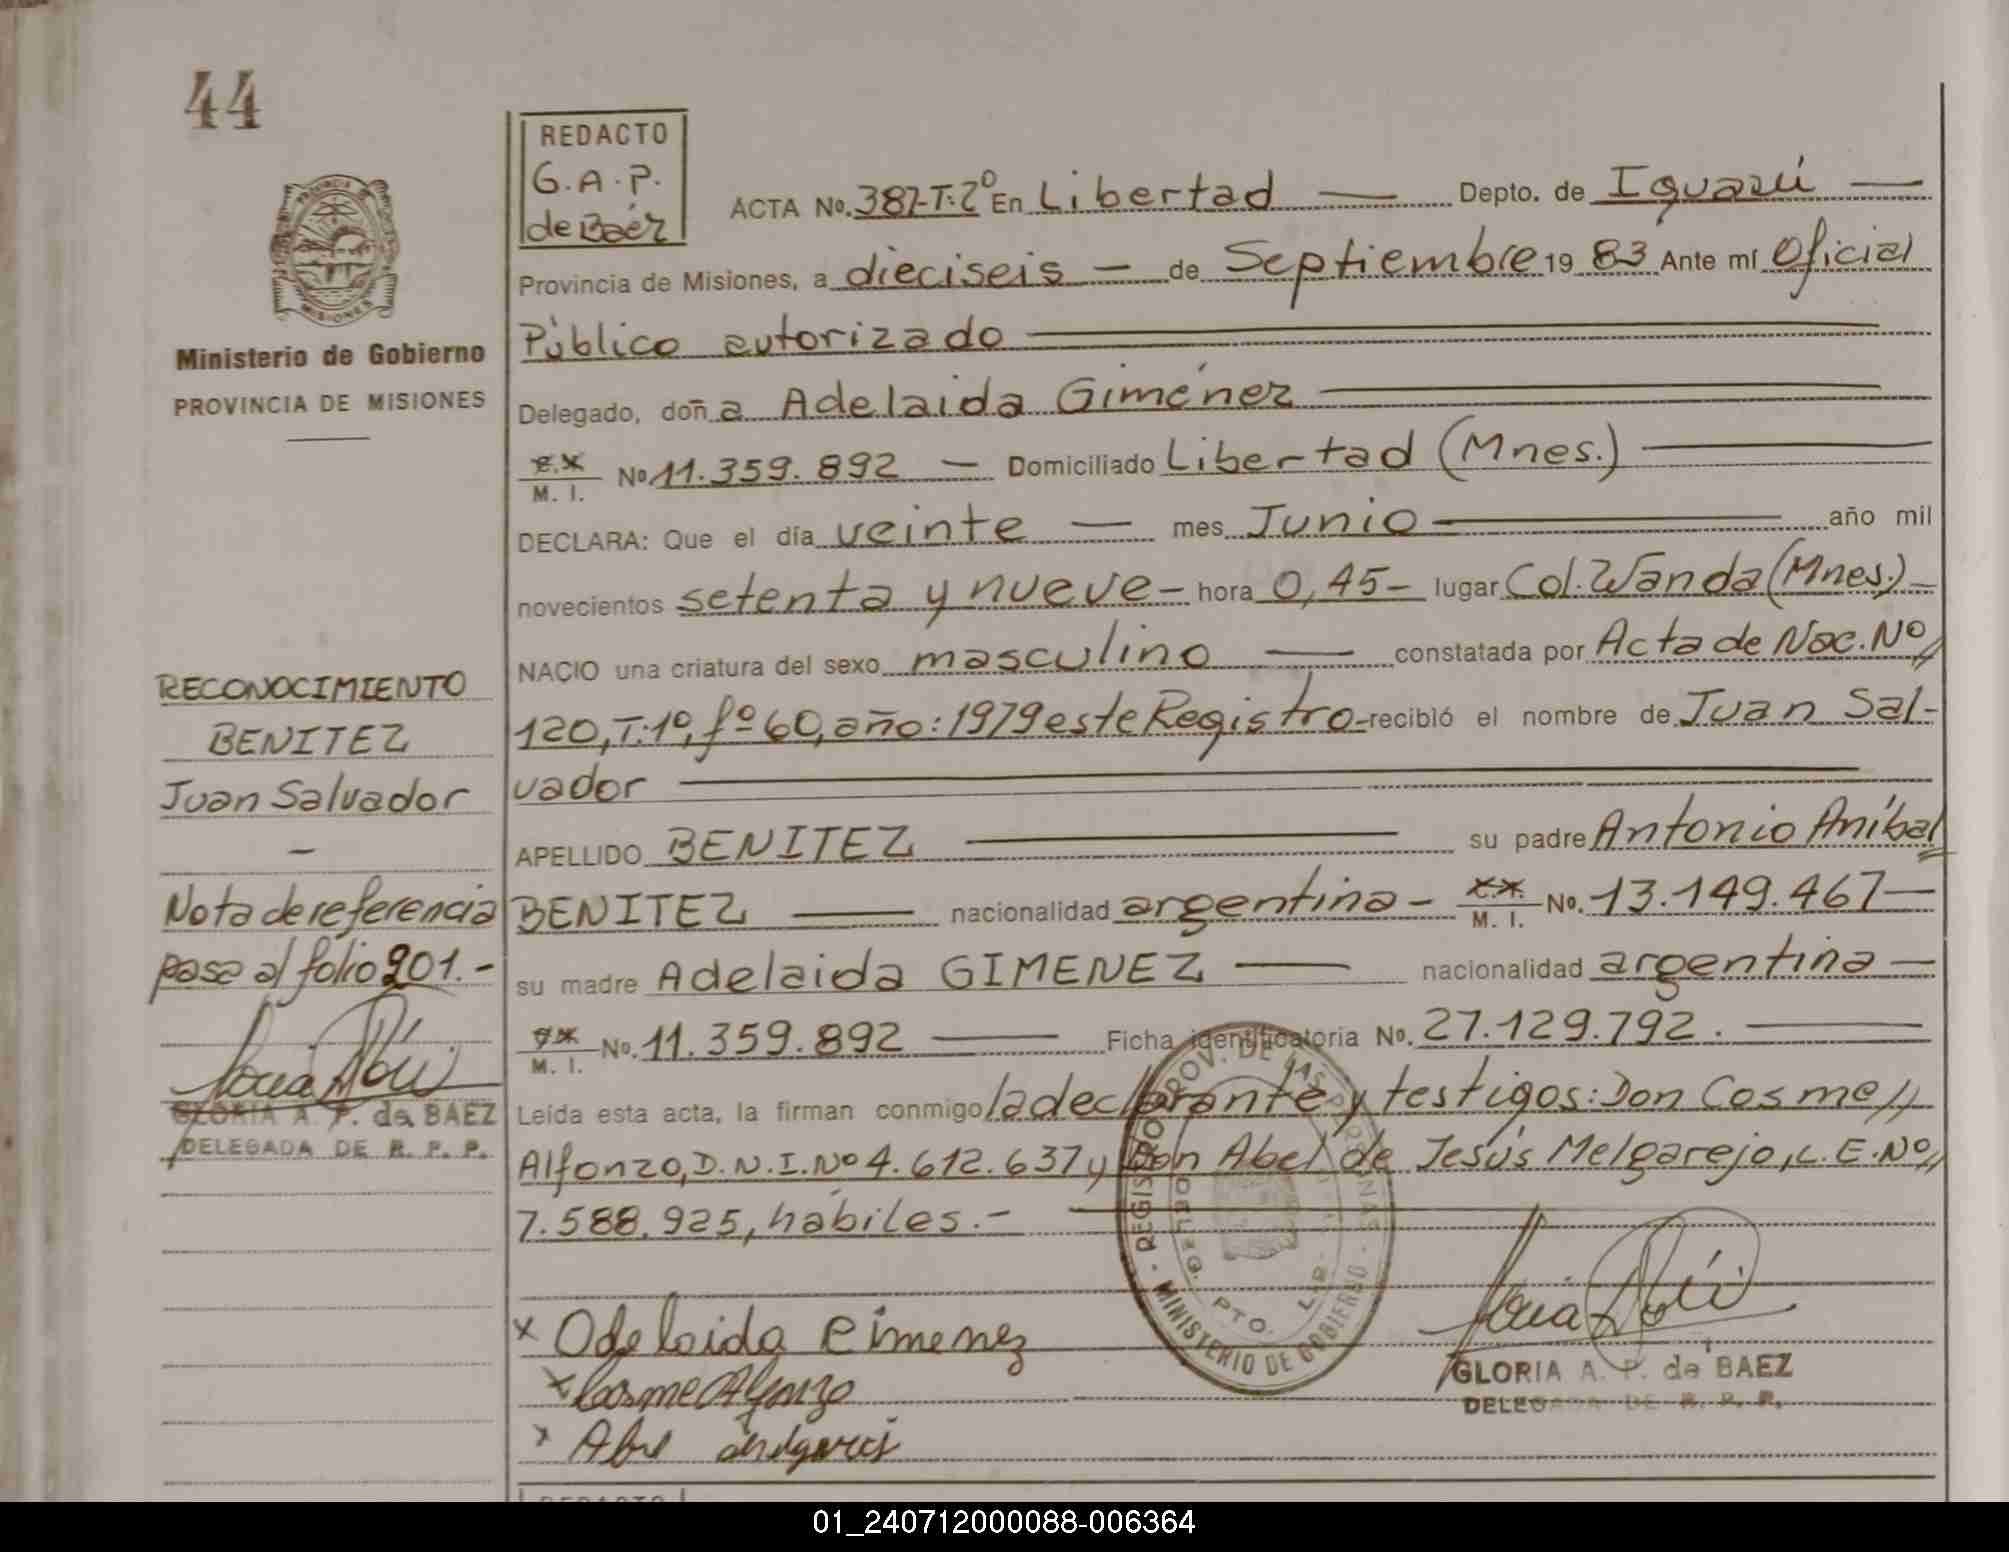 44
REDACTO
G.A.P.
de Baéz
ACTA No. 387-T:2º En Libertad — Depto. de Iguazú —
Provincia de Misiones, a dieciseis — de Septiembre 19 83 Ante mí Oficial
Público autorizado
Delegado, doña Adelaida Giménez
M. I. No 11.359.892 — Domiciliado Libertad (Mnes.)
DECLARA: Que el día veinte — mes Junio — año mil
novecientos setenta y nueve - hora 0,45 - lugar Col. Wanda (Mnes.) -
NACIO una criatura del sexo masculino — constatada por Acta de Nac. Nº//
120, T:1º, fº 60, año: 1979 este Registro - recibió el nombre de Juan Sal-
vador
APELLIDO BENITEZ — su padre Antonio Aníbal//
BENITEZ — nacionalidad argentina - M. I. No. 13.149.467 —
su madre Adelaida GIMENEZ — nacionalidad argentina —
M. I. No. 11.359.892 — Ficha identificatoria No. 27.129.792. —
Leída esta acta, la firman conmigo la declarante y testigos: Don Cosme//
Alfonzo, D.N.I. Nº 4.612.637 y Don Abel de Jesús Melgarejo, L.E. Nº//
7.588.925, hábiles.-
x Adelaida Gimenez
x Cosme Alfonzo
x
GLORIA A. P. de BAEZ
DELEGADA DE R. P. P.
REGIS PROV. DE LAS PERSONAS
MINISTERIO DE GOBIERNO
PTO. LIB
Ministerio de Gobierno
PROVINCIA DE MISIONES
PROVINCIA DE
MISIONES
RECONOCIMIENTO
BENITEZ
Juan Salvador
-
Nota de referencia
pasa al folio 201.-
GLORIA A. P. de BAEZ
DELEGADA DE R. P. P.
REDACTO
01_240712000088-006364